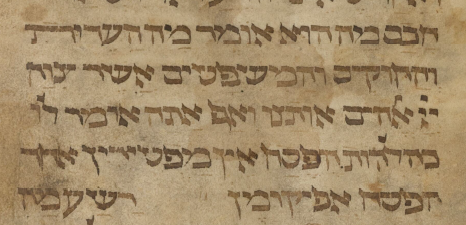 חכם מה הוא אומר מה העדות
והחוקים והמשפטים אשר צוה
יי אלהים אותנו ואף אתה אמור לו
כהלכות הפסח אין מפטירין אחר
הפסח אפיקומן רשע מה